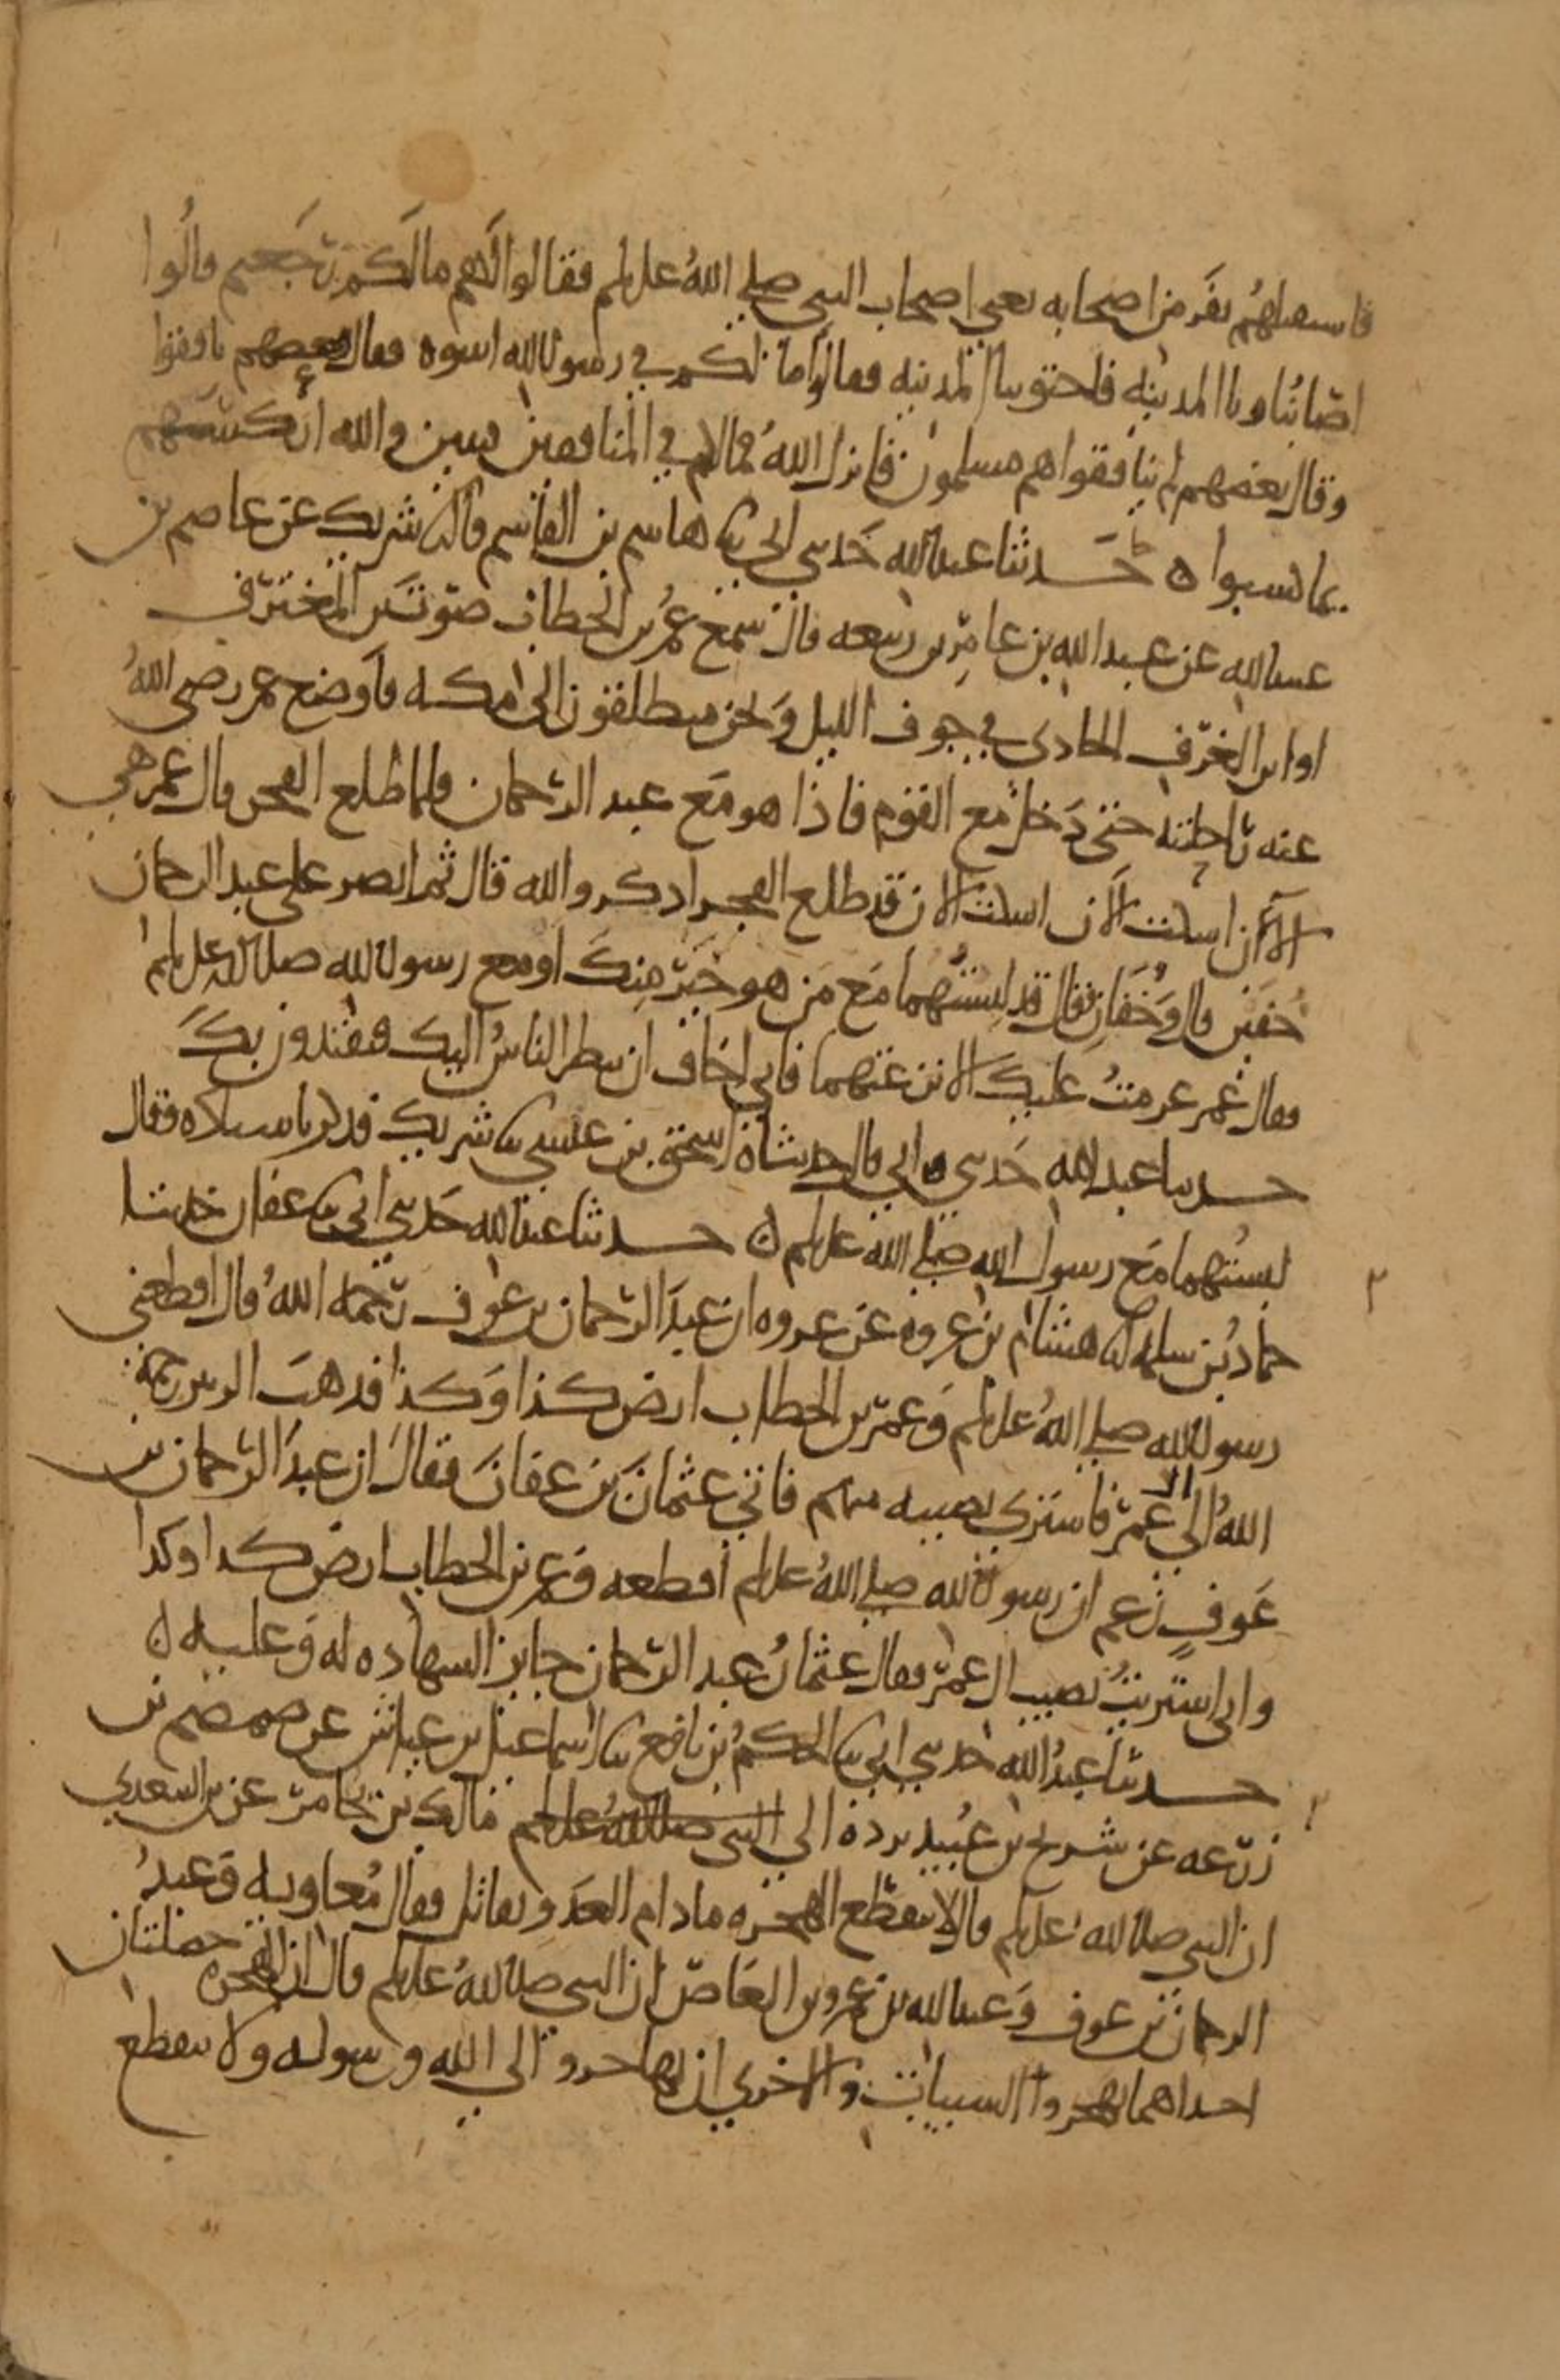 فاستقبلهم نفر من اصحابه يعني اصحاب النبي صلى الله عليه وسلم فقالوا لهم ما لكم رجعتم قالوا
اصابنا وباء المدينه فاجتوينا المدينه فقالوا اما لكم في رسول الله اسوه فقال بعضهم نافقوا
وقال بعضهم لم ينافقوا هم مسلمون فانزل الله فما لكم في المنافقين فئتين والله اركسهم
بما كسبوا ه حدثنا عبد الله حدثني ابي ثنا هاشم بن القاسم قال ثنا شريك عن عاصم بن
عبيد الله عن عبد الله بن عامر بن ربيعه قال سمع عمر بن الخطاب صوت بن المغترف
او ابن الغرف الحادي في جوف الليل ونحن منطلقون الى مكه فاوضع عمر رضي الله
عنه راحلته حتى دخل مع القوم فاذا هو مع عبد الرحمان فلما طلع الفجر قال عمر هي
الآن اسكت الآن اسكت الان قد طلع الفجر اذكروا الله قال ثم ابصر على عبد الرحمان
خفين قال وخفان فقال قد لبستهما مع من هو خير منك او مع رسول الله صلى الله عليه وسلم
فقال عمر عزمت عليك الا نزعتهما فاني اخاف ان ينظر الناس اليك فيقتدون بك
حدثنا عبد الله حدثني ابي قال وحدثناه اسحق بن عيسى ثنا شريك فذكره باسناده فقال
لبستهما مع رسول الله صلى الله عليه وسلم ه حدثنا عبد الله حدثني ابي ثنا عفان حدثنا
حماد بن سلمه انا هشام بن عروه عن عروه ان عبد الرحمان بن عوف رحمه الله قال اقطعني
رسول الله صلى الله عليه وسلم وعمر بن الخطاب ارض كذا وكذا فذهب الزبير رحمه
الله الى ال عمر فاشترى نصيبه منهم فاتى عثمان بن عفان فقال ان عبد الرحمان بن
عوف زعم ان رسول الله صلى الله عليه وسلم اقطعه وعمر بن الخطاب ارض كذا وكذا
واني اشتريت نصيب ال عمر فقال عثمان عبد الرحمان جايز الشهاده له وعليه ه
حدثنا عبد الله حدثني ابي ثنا الحكم بن نافع ثنا اسماعيل بن عياش عن ضمضم بن
زرعه عن شريح بن عبيد يرده الى النبي صلى الله عليه وسلم مالك بن يخامر عن بن السعدي
ان النبي صلى الله عليه وسلم قال لا تنقطع الهجره ما دام العدو يقاتل فقال معاويه وعبد
الرحمان بن عوف وعبد الله بن عمرو بن العاص ان النبي صلى الله عليه وسلم قال ان الهجره خصلتان
احداهما تهجروا السيئات والاخرى ان تهاجروا الى الله ورسوله ولا تنقطع